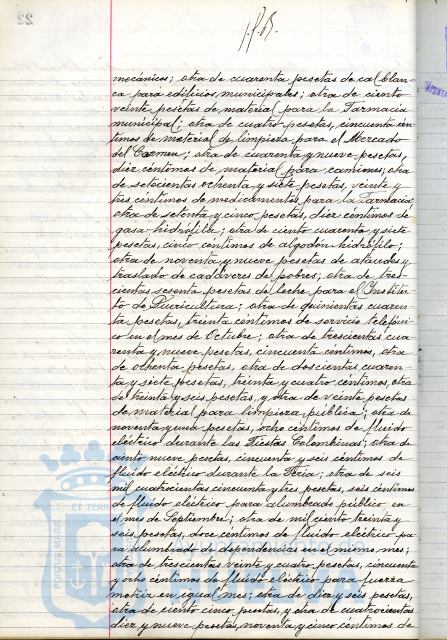 mecánicos; otra de cuarenta pesetas de cal blan-
ca para edificios municipales; otra de ciento
veinte pesetas de material para la Farmacia
municipal; otra de cuatro pesetas, cincuenta cén-
timos de material de limpieza para el Mercado
del Carmen; otra de cuarenta y nueve pesetas,
diez céntimos de material para camiones; otra
de setecientas ochenta y siete pesetas, veinte y
tres céntimos de medicamentos para la Farmacia;
otra de setenta y cinco pesetas, diez céntimos de
gasa hidrófila; otra de ciento cuarenta y siete
pesetas, cinco céntimos de algodón hidrófilo;
otra de noventa y nueve pesetas de ataudes y
traslado de cadáveres de pobres; otra de tres-
cientas sesenta pesetas de leche para el Institu-
to de Puericultura; otra de quinientas cuaren-
ta pesetas, treinta céntimos de servicio telefóni-
co en el mes de Octubre; otra de trescientas cua-
renta y nueve pesetas, cincuenta céntimos, otra
de ochenta pesetas, otra de doscientas cuaren-
ta y siete pesetas, treinta y cuatro céntimos, otra
de treinta y seis pesetas, y otra de veinte pesetas
de material para limpieza pública; otra de
noventa y una pesetas, ocho céntimos de fluido
eléctrico durante las Fiestas Colombinas; otra de
ciento nueve pesetas, cincuenta y seis céntimos de
fluido eléctrico durante la Feria; otra de seis
mil cuatrocientas cincuenta y tres pesetas, seis céntimos
de fluido eléctrico para alumbrado público en
el mes de Septiembre; otra de mil ciento treinta y
seis pesetas, doce céntimos de fluido eléctrico pa-
ra alumbrado de dependencias en el mismo mes;
otra de trescientas veinte y cuatro pesetas, cincuenta
y ocho céntimos de fluido eléctrico para fuerza
motriz en igual mes; otra de diez y seis pesetas,
otra de ciento cinco pesetas, y otra de cuatrocientas
diez y nueve pesetas, noventa y cinco céntimos de
PORTUS MARIS
ET TERR
22